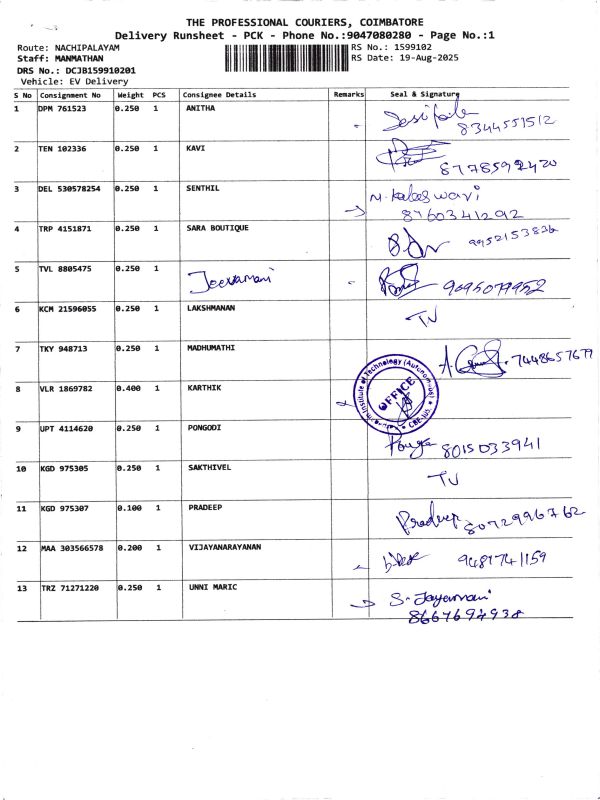 THE PROFESSIONAL COURIERS, COIMBATORE
Delivery Runsheet - PCK - Phone No.:9047080280 - Page No.:1
Route: NACHIPALAYAM RS No.: 1599102
Staff: MANMATHAN RS Date: 19-Aug-2025
DRS No.: DCJB159910201
Vehicle: EV Delivery
S No Consignment No Weight PCS Consignee Details Remarks Seal & Signature
1 DPM 761523 0.250 1 ANITHA
8344551512
2 TEN 102336 0.250 1 KAVI
8778592420
3 DEL 530578254 0.250 1 SENTHIL
8760341292
4 TRP 4151871 0.250 1 SARA BOUTIQUE 9952153826
5 TVL 8805475 0.250 1 Jeevamani 9095079952
6 KCM 21596055 0.250 1 LAKSHMANAN TJ
7 TKY 948713 0.250 1 MADHUMATHI 7448657679
8 VLR 1869782 0.400 1 KARTHIK
Institute of Technology (Autonomous) OFFICE
9 UPT 4114620 0.250 1 PONGODI 8015033941
10 KGD 975305 0.250 1 SAKTHIVEL TJ
11 KGD 975307 0.100 1 PRADEEP Pradeep 8072996762
12 MAA 303566578 0.200 1 VIJAYANARAYANAN 9481741159
13 TRZ 71271220 0.250 1 UNNI MARIC S. Jayamani
8667694938